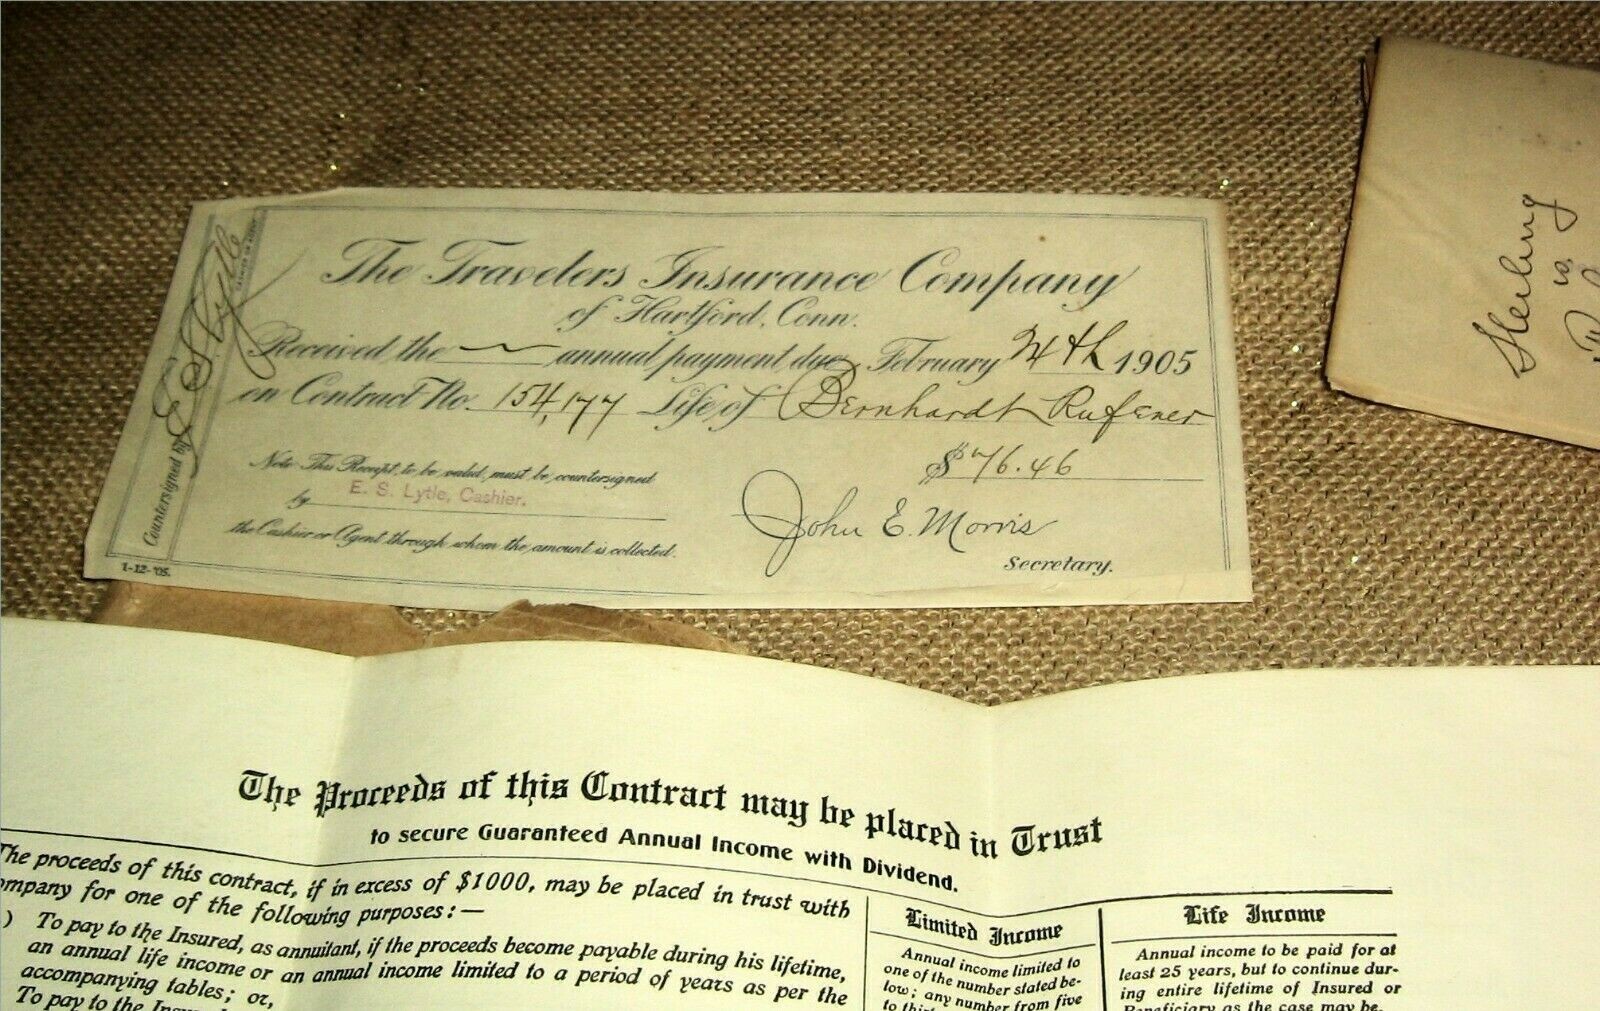 The Travelers Insurance Company
of Hartford, Conn.
Received the annual payment due February 24th 1905
on Contract No. 154,177 Life of Bernhardt Rufener
$76.46
Note: This Receipt, to be valid, must be countersigned
by E. S. Lytle, Cashier.
the Cashier or Agent through whom the amount is collected.
John E. Morris
Secretary.
Countersigned by E. S. Lytle
1-12-'05.
Sterling
The Proceeds of this Contract may be placed in Trust
to secure Guaranteed Annual Income with Dividend.
The proceeds of this contract, if in excess of $1000, may be placed in trust with
ompany for one of the following purposes:—
) To pay to the Insured, as annuitant, if the proceeds become payable during his lifetime,
an annual life income or an annual income limited to a period of years as per the
accompanying tables; or,
To pay to the
Limited Income
Annual income limited to
one of the number stated be-
low; any number from five
Life Income
Annual income to be paid for at
least 25 years, but to continue dur-
ing entire lifetime of Insured or
Beneficiary as the case may be.